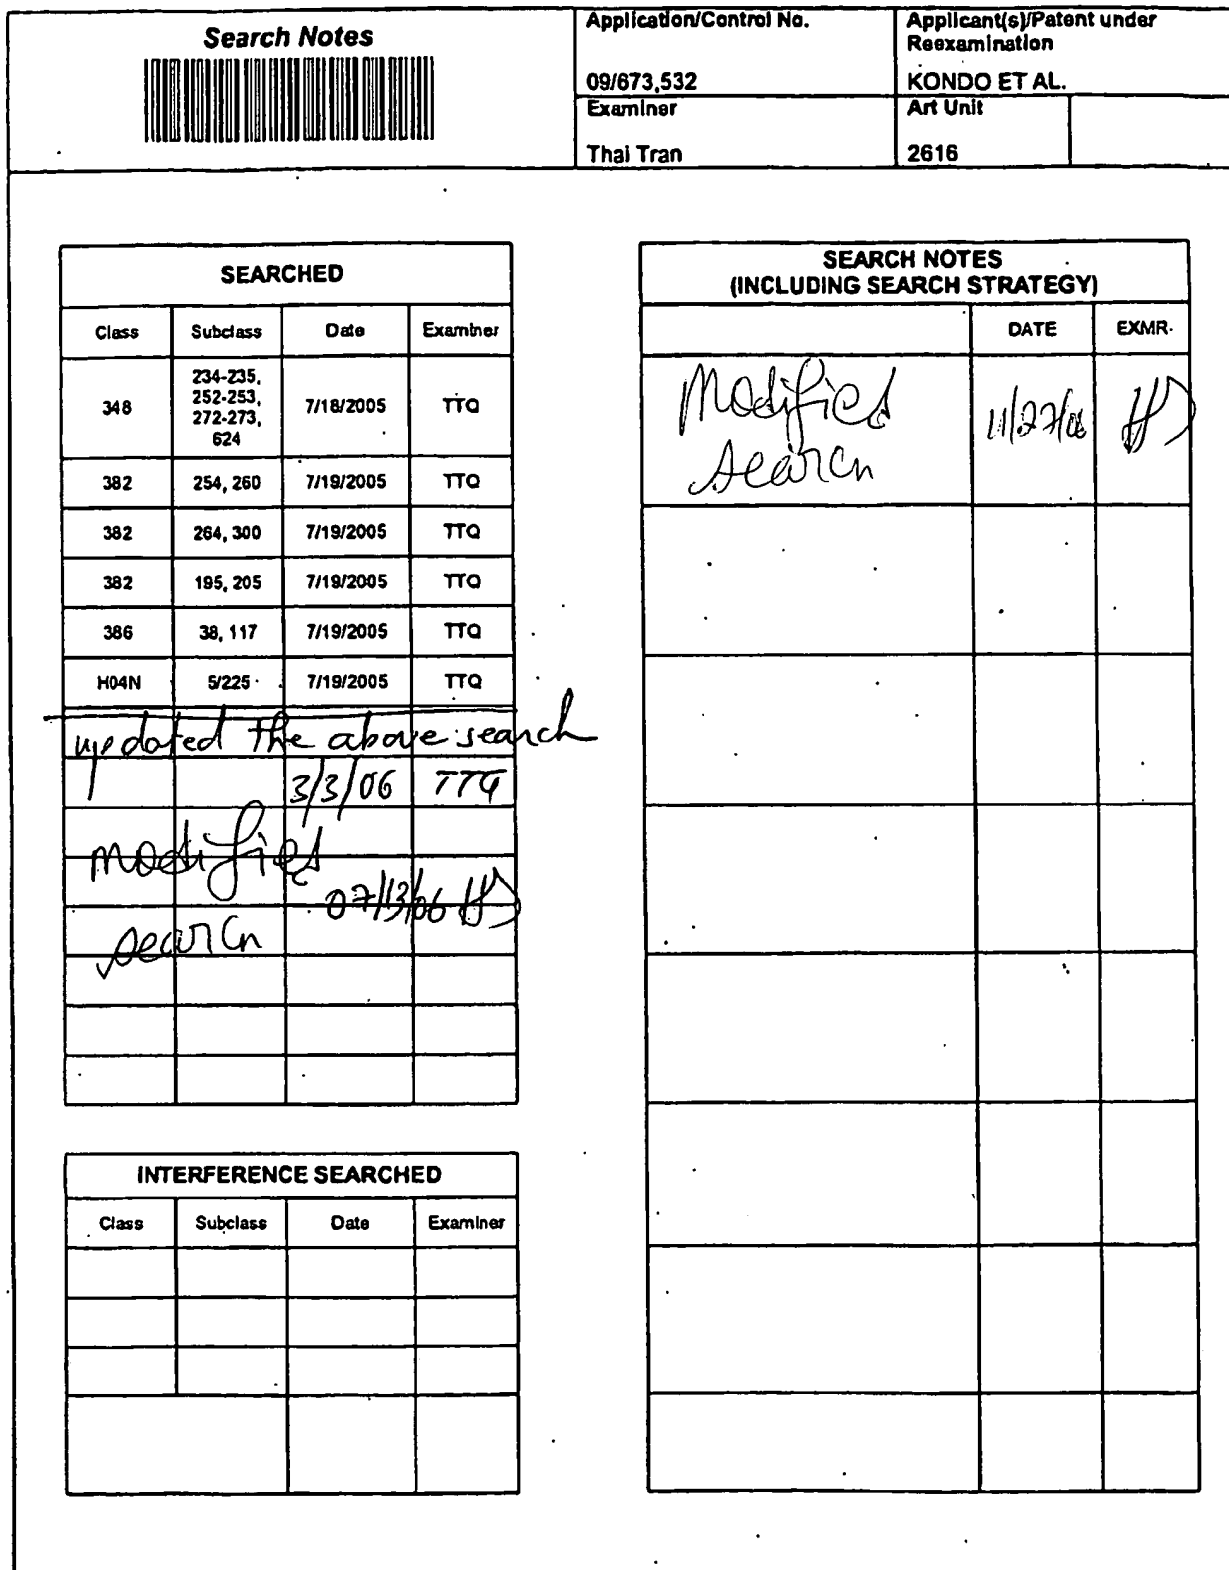 Search Notes
Application/Control No.
09/673,532
Applicant(s)/Patent under
Reexamination
KONDO ET AL.
Examiner
Thai Tran
Art Unit
2616
SEARCHED
Class Subclass Date Examiner
348 234-235, 252-253, 272-273, 624 7/18/2005 TTQ
382 254, 260 7/19/2005 TTQ
382 264, 300 7/19/2005 TTQ
382 195, 205 7/19/2005 TTQ
386 38, 117 7/19/2005 TTQ
H04N 5/225 7/19/2005 TTQ
updated the above search
3/3/06 TTQ
modified
07/13/06
search
INTERFERENCE SEARCHED
Class Subclass Date Examiner
SEARCH NOTES
(INCLUDING SEARCH STRATEGY)
DATE EXMR.
Modified 11/27/06
search